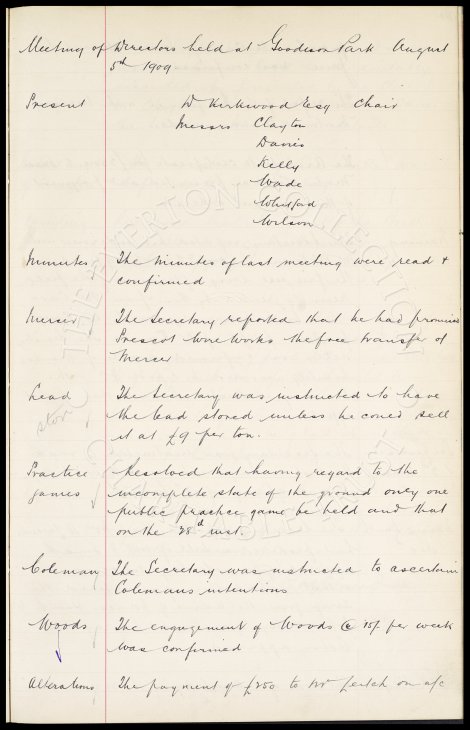 Meeting of Directors held at Goodison Park August
5th 1909
Present W Kirkwood Esq Chair
Messrs Clayton
Davies
Kelly
Wade
Whitford
Wilson
Minutes The minutes of last meeting were read &
confirmed
Mercer The Secretary reported that he had promised
Prescot Wire Works the free transfer of
Mercer
Lead The Secretary was instructed to have
stor the lead stored unless he could sell
it at £9 per ton.
Practice Resolved that having regard to the
games incomplete state of the ground only one
public practice game be held and that
on the 28d inst.
Coleman The Secretary was instructed to ascertain
Colemans intentions
Woods The engagement of Woods @ 15/. per week
was confirmed
Alterations The payment of £250 to Mr Leitch on a/c
THE EVERTON COLLECTION CHARITABLE TRUST